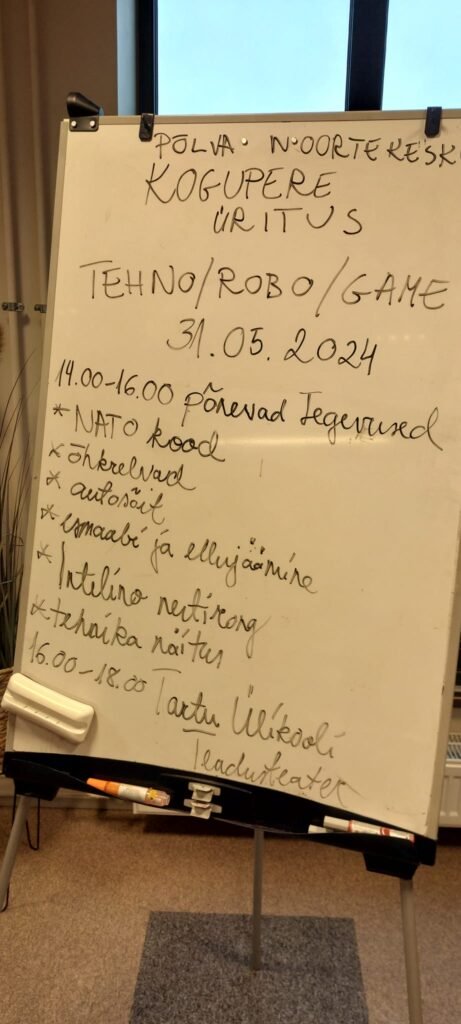 PÕLVA NOORTEKESK
KOGUPERE
ÜRITUS
TEHNO/ROBO/GAME
31.05.2024
14.00-16.00 põnevad Tegevused
* NATO kood
* õhkrelvad
* autosõit
* esmaabi ja ellujäämine
* Intelino nutirong
* tehnika näitus
16.00-18.00 Tartu Ülikooli
Teadusteater